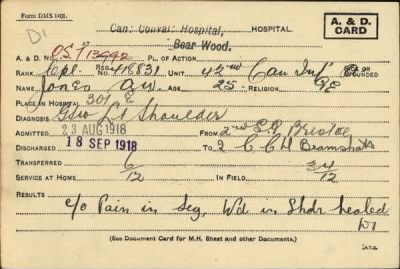 Form DMS 1401.
D1
Can: Conval: Hospital, HOSPITAL.
Bear Wood.
A. & D. CARD
A. & D. No. OST 13992 PL. OF ACTION.
RANK Cpl. REG. No. 418831 UNIT 42nd Can Inf SICK OR WOUNDED
NAME Jones A.W. AGE 25. RELIGION CE
PLACE IN HOSPITAL 301 E
DIAGNOSIS GSW Lt Shoulder
ADMITTED 23 AUG 1918 FROM 2nd S.G. Bristol
DISCHARGED 18 SEP 1918 TO 2 C C H Bramshott
TRANSFERRED
SERVICE AT HOME 6/12 IN FIELD 34/12
RESULTS c/o Pain in Leg, Wd in Shdr healed
D1
(See Document Card for M.H. Sheet and other Documents.)